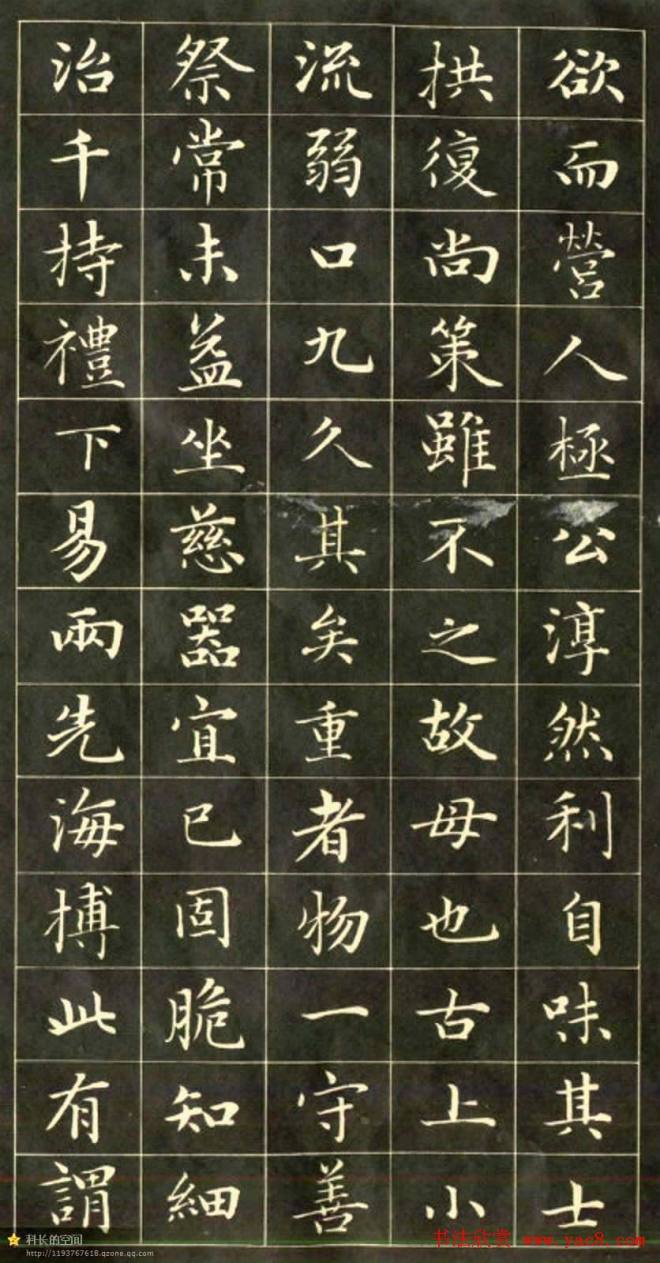 欲而營人極公淳然利自味其士
拱復尚策雖不之故母也古上小
流弱口九久其矣重者物一守善
祭常未益坐慈器宜已固脆知細
治千持禮下易兩先海搏此有謂
科长的空间
http://1193767618.qzone.qq.com
书法欣赏 www.yac8.com